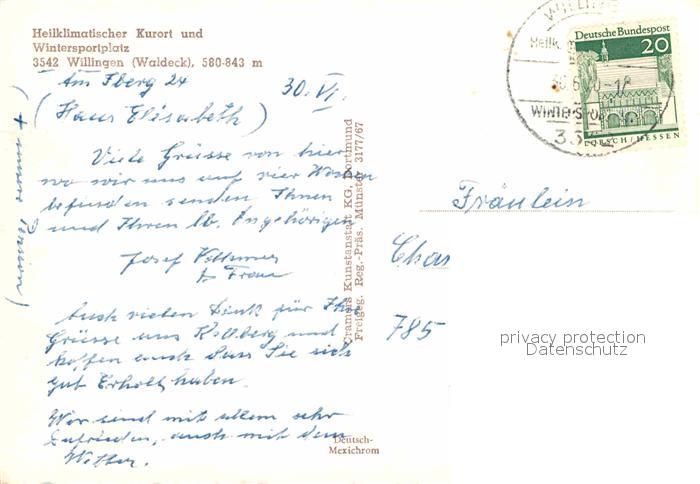 Heilklimatischer Kurort und
Wintersportplatz
3542 Willingen (Waldeck), 580-843 m
Am Iberg 24
30. VI.
(Haus Elisabeth)
Viele Grüsse von hier
wo wir uns auf vier Wochen
befinden senden Ihnen
und Ihren lb. Angehörigen
Josef
Frau
Auch vielen Dank für Ihre
Grüsse aus und
hoffen auch dass Sie sich
gut Erholt haben.
Wir sind mit allem sehr
zufrieden, auch mit dem
Wetter.
Cramers Kunstanstalt KG, Dortmund
Freigeg. Reg.-Präs. Münster 3177/67
Deutsch-
Mexichrom
Deutsche Bundespost
20
LORSCH/HESSEN
Heilk
Wintersp
35
Fräulein
Chas
785
privacy protection
Datenschutz